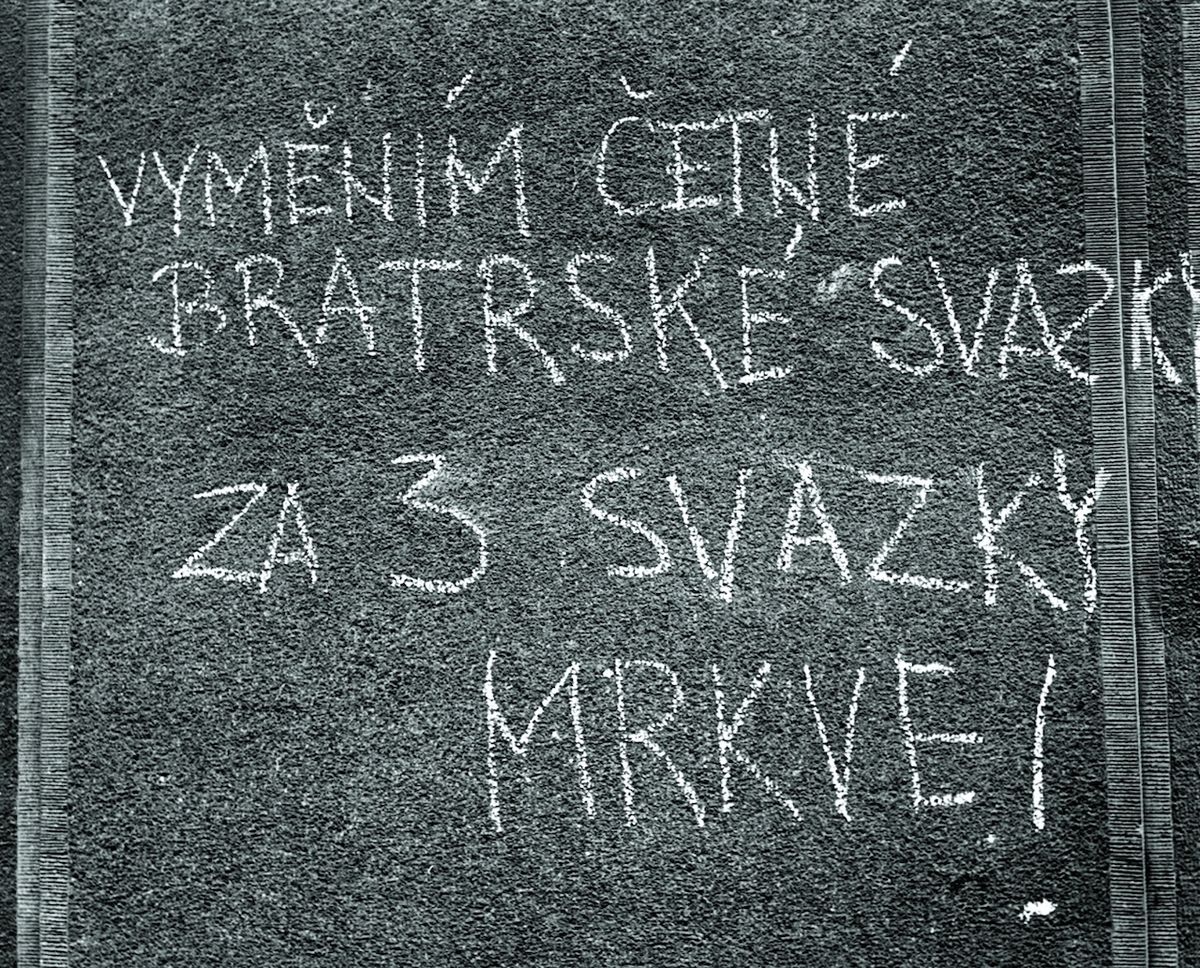 VYMĚNÍM ČETNÉ
BRATRSKÉ SVAZKY
ZA 3 SVAZKY
MRKVE!